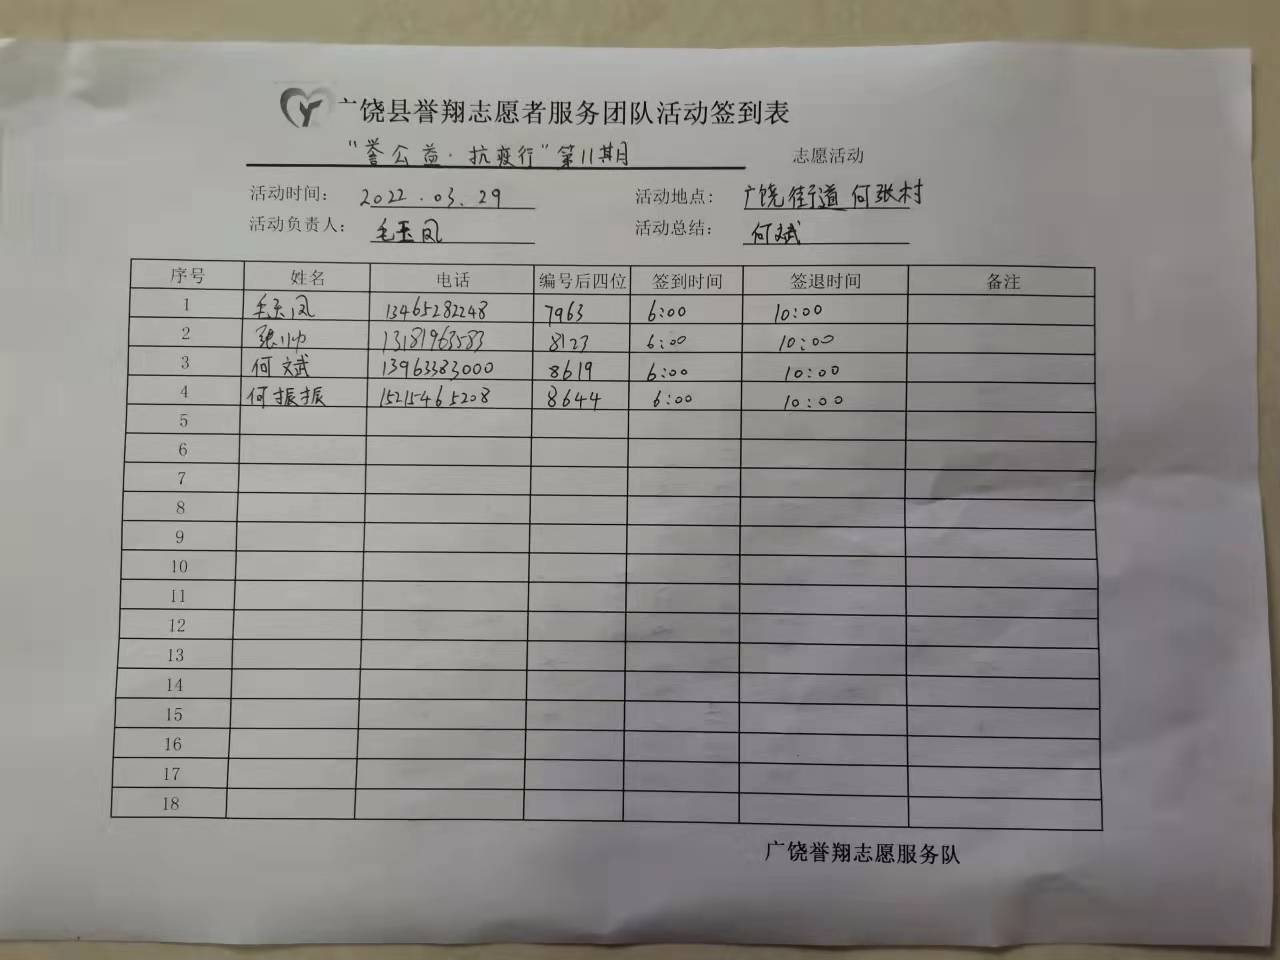 广饶县誉翔志愿者服务团队活动签到表
“誉公益·抗疫行”第11期月 志愿活动
活动时间: 2022.03.29 活动地点: 广饶街道何张村
活动负责人: 毛玉凤 活动总结: 何斌
序号 姓名 电话 编号后四位 签到时间 签退时间 备注
1 毛玉凤 13465282248 7963 6:00 10:00
2 张小帅 13181963583 8123 6:00 10:00
3 何斌 13963383000 8619 6:00 10:00
4 何振振 15215465208 8644 6:00 10:00
5
6
7
8
9
10
11
12
13
14
15
16
17
18
广饶誉翔志愿服务队